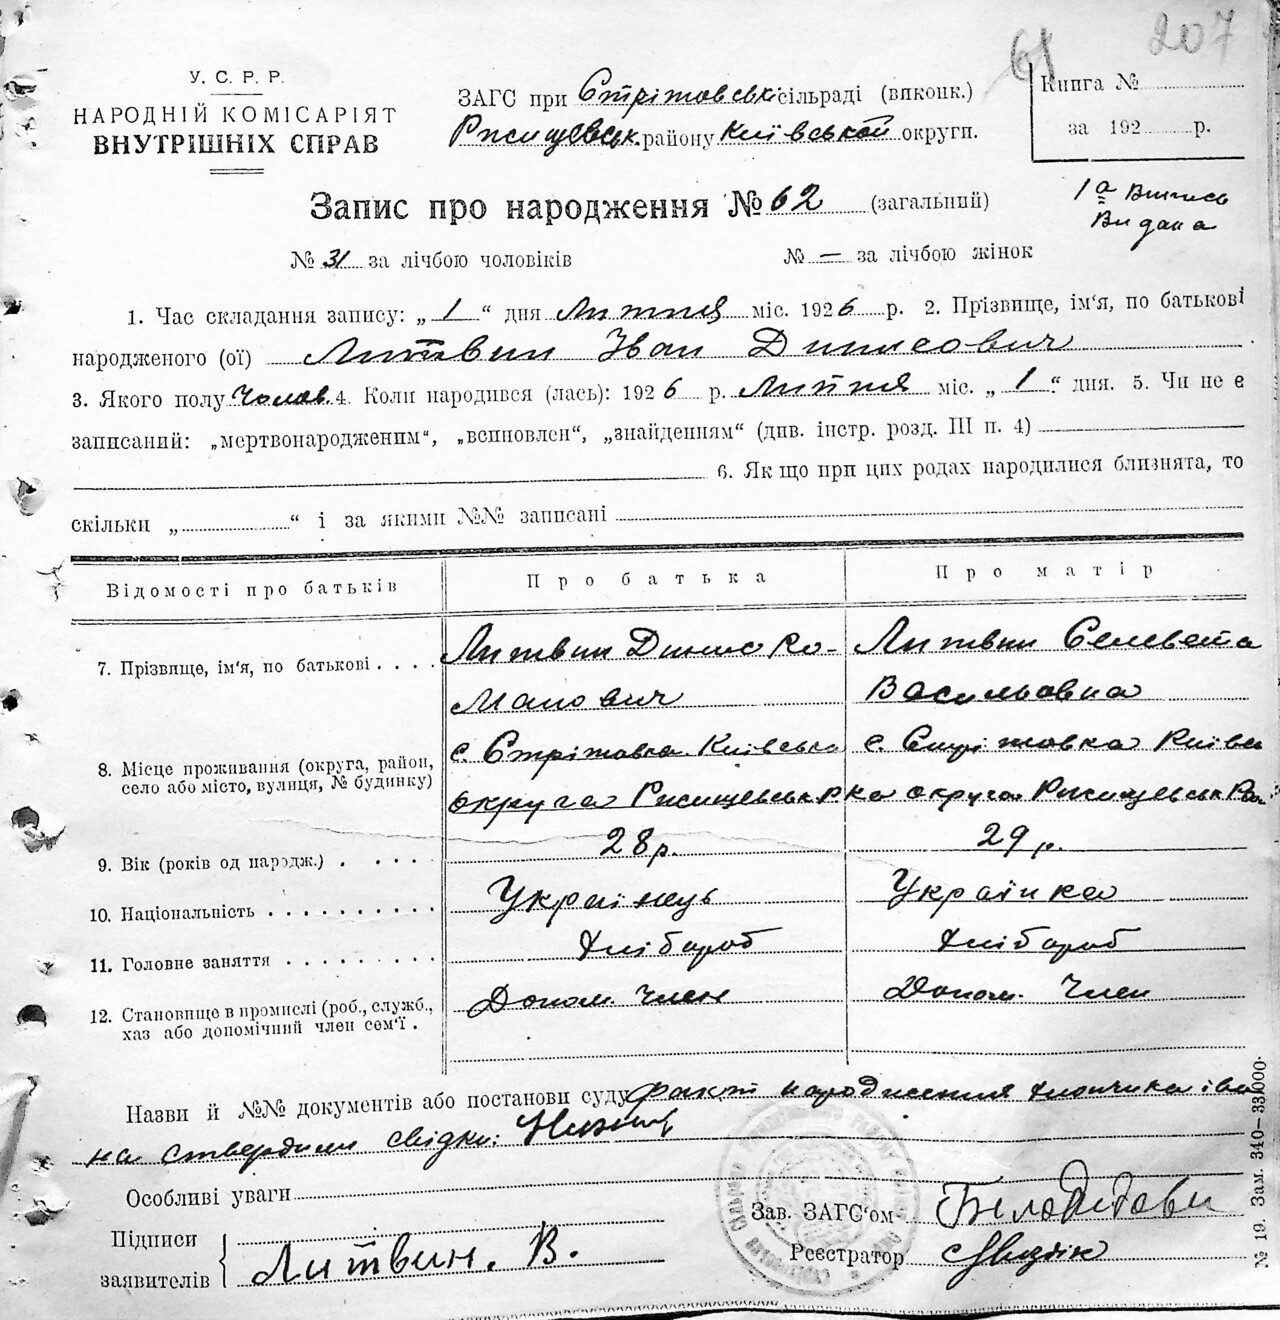 61 207
У. С. Р. Р.
НАРОДНІЙ КОМІСАРІЯТ
ВНУТРІШНІХ СПРАВ
ЗАГС при Стрітовськ. сільраді (виконк.)
Ржищевськ. району Київської округи.
Книга №
за 192 р.
1а Випись
Видана
Запис про народження № 62 (загальний)
№ 31 за лічбою чоловіків № — за лічбою жінок
1. Час складання запису: „ 1 “ дня Липня міс. 1926 р. 2. Прізвище, ім‘я, по батькові
народженого (ої) Литвин Іван Динисович
3. Якого полу Чолов. 4. Коли народився (лась): 1926 р. Липня міс. „ 1 “ дня. 5. Чи не є
записаний: „мертвонародженим“, „всиновлен“, „знайденням“ (див. інстр. розд. III п. 4)
6. Як що при цих родах народилися близнята, то
скільки „ “ і за якими №№ записані
Відомості про батьків Про батька Про матір
7. Прізвище, ім‘я, по батькові . . . . Литвин Динис Ро- Литвин Селевета
манович Васильовна
8. Місце проживання (округа, район, с. Стрітовка Київська с. Стрітовка Київс
село або місто, вулиця, № будинку) округа Ржищевськ Р. ка округа Ржищевськ Р-на
9. Вік (років од народж.) . . . . . 28 р. 29 р.
10. Національність . . . . . . . . . . Українець Українка
11. Головне заняття . . . . . . . . . Хлібороб Хлібороб
12. Становище в промислі (роб., служб., Допом. член Допом. Член
хаз або допомічний член сем‘ї .
Назви й №№ документів або постанови суду факт народження хлопчика іва
на ствердили свідки:
Особливі уваги
Підписи
заявителів Литвин. В.
Зав. ЗАГС‘ом
Реєстратор
№ 19. Зам. 340—33.000.